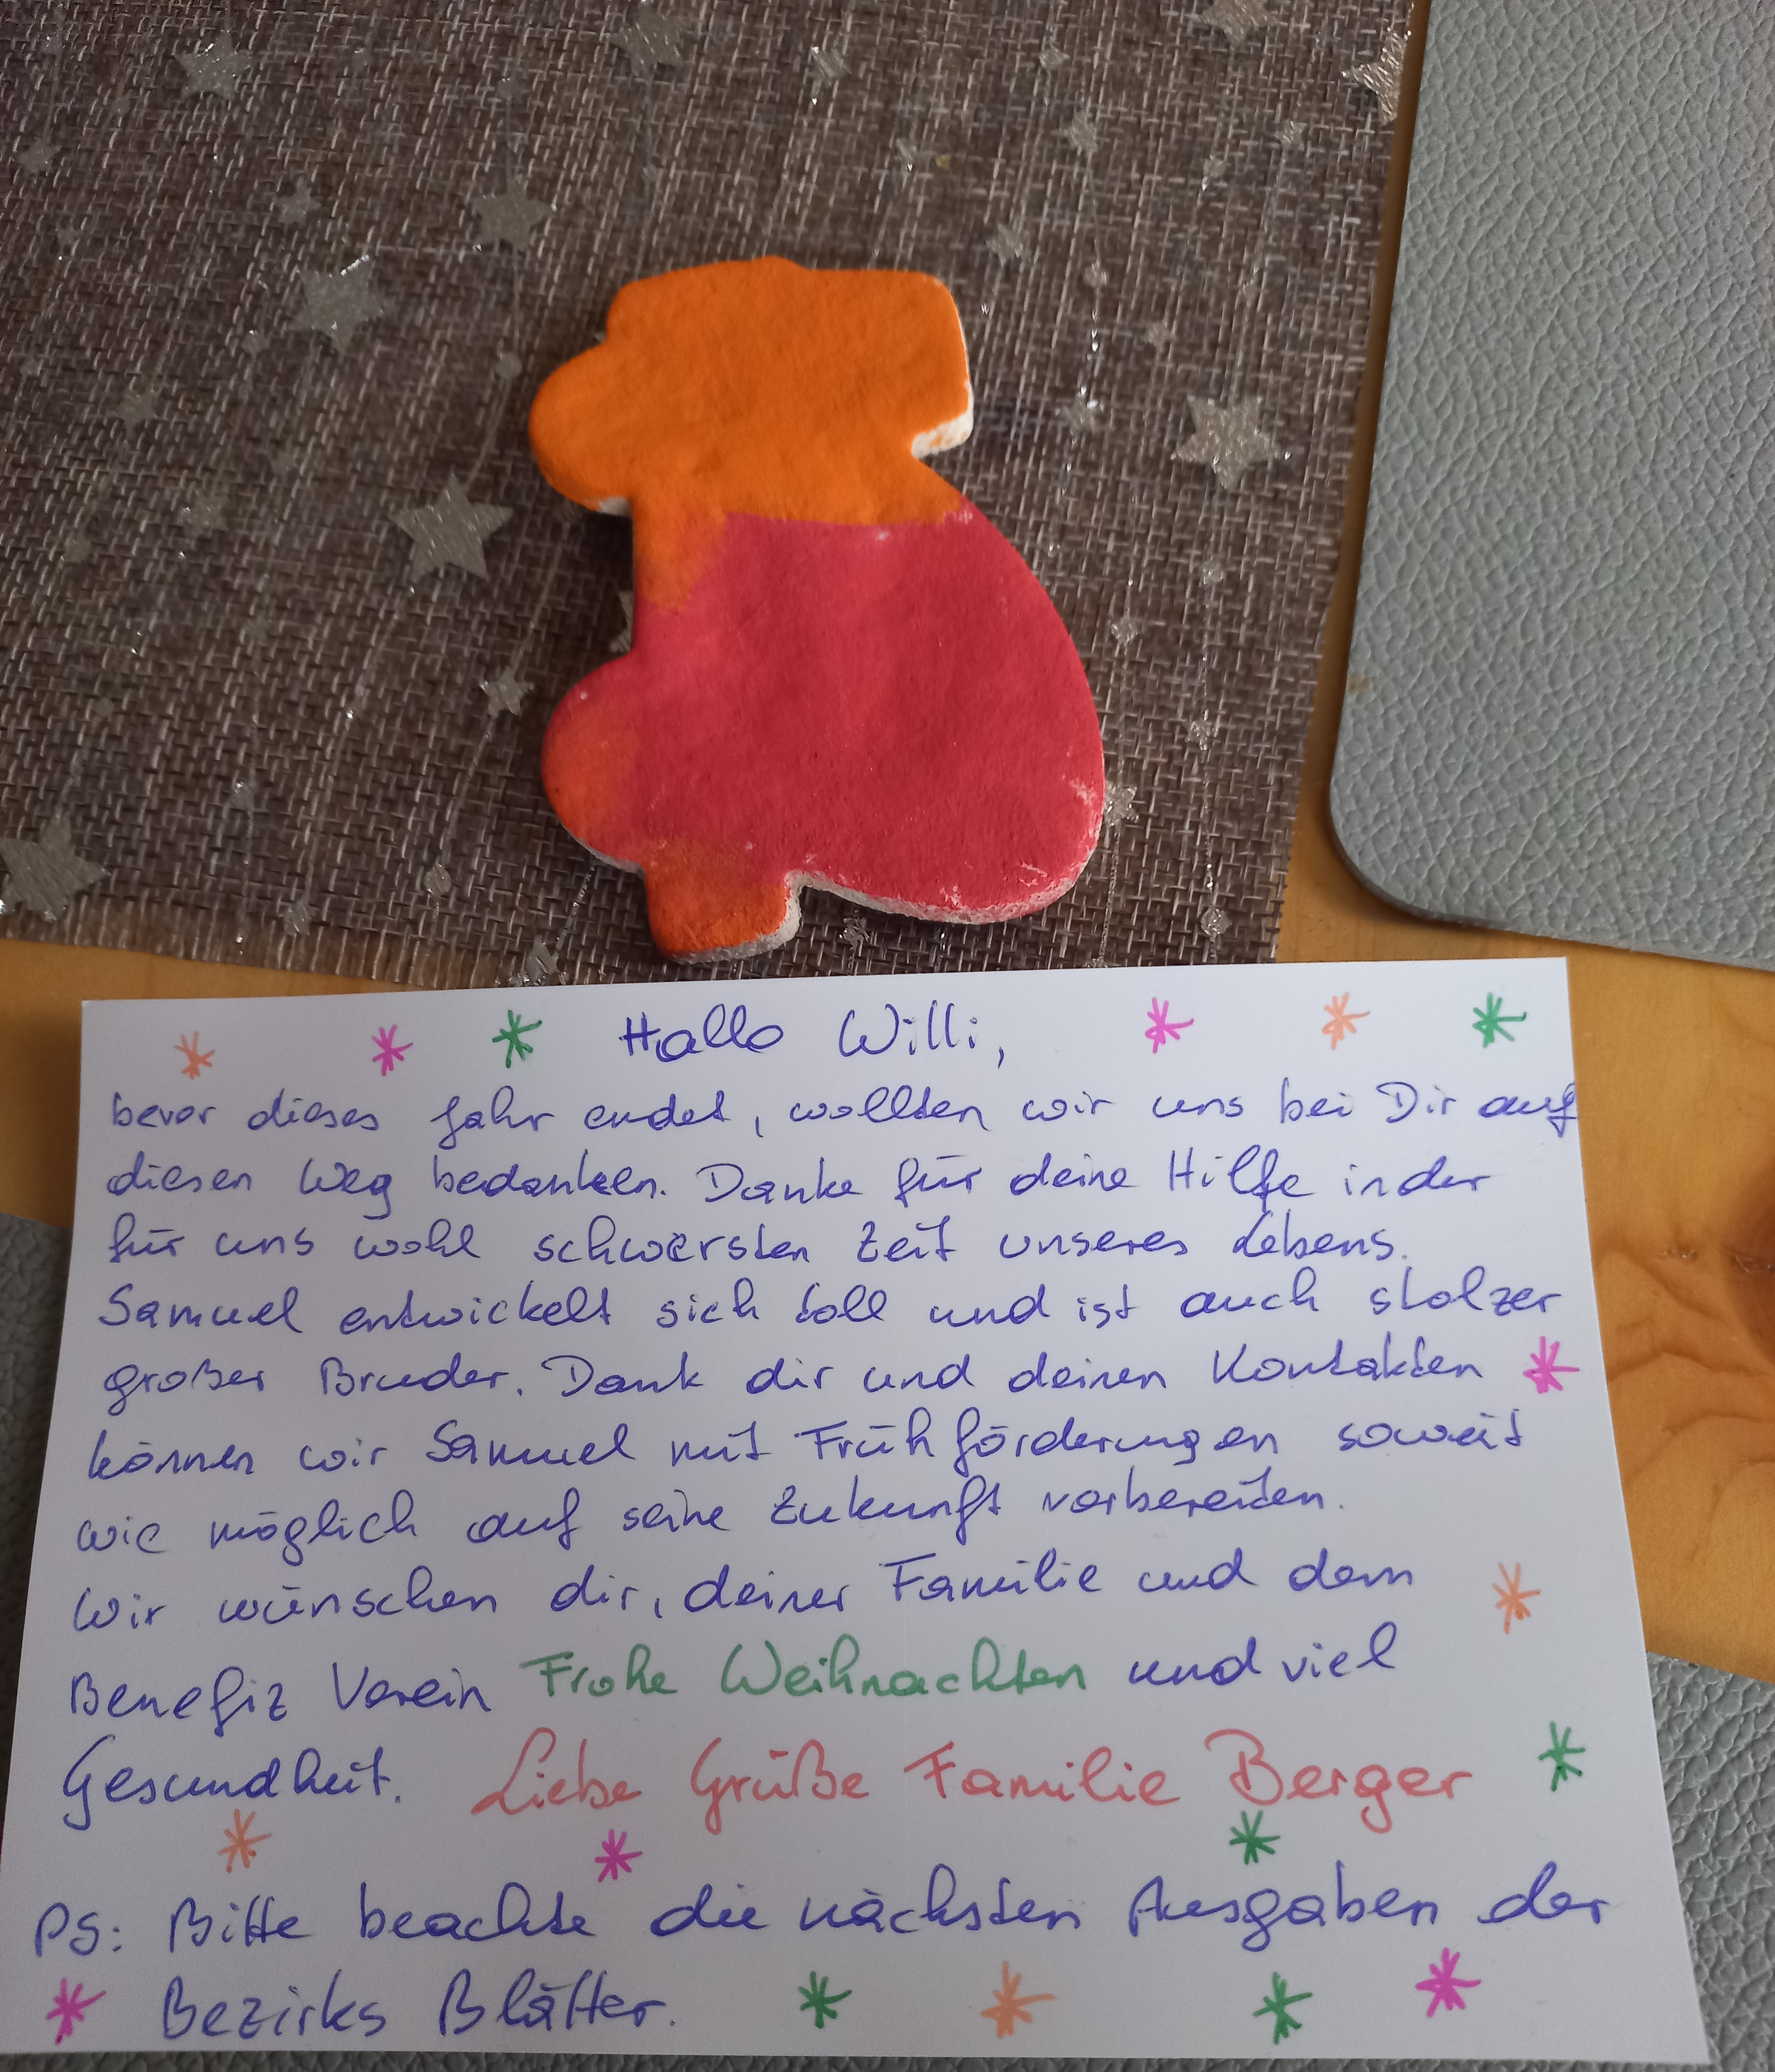 Hallo Willi,
bevor dieses Jahr endet, wollten wir uns bei Dir auf
diesen Weg bedanken. Danke für deine Hilfe in der
für uns wohl schwersten Zeit unseres Lebens.
Samuel entwickelt sich toll und ist auch stolzer
großer Bruder. Dank dir und deinen Kontakten
können wir Samuel mit Frühförderungen soweit
wie möglich auf seine Zukunft vorbereiten.
Wir wünschen dir, deiner Familie und dem
Benefiz Verein Frohe Weihnachten und viel
Gesundheit. Liebe Grüße Familie Berger
PS: Bitte beachte die nächsten Ausgaben der
Bezirks Blätter.